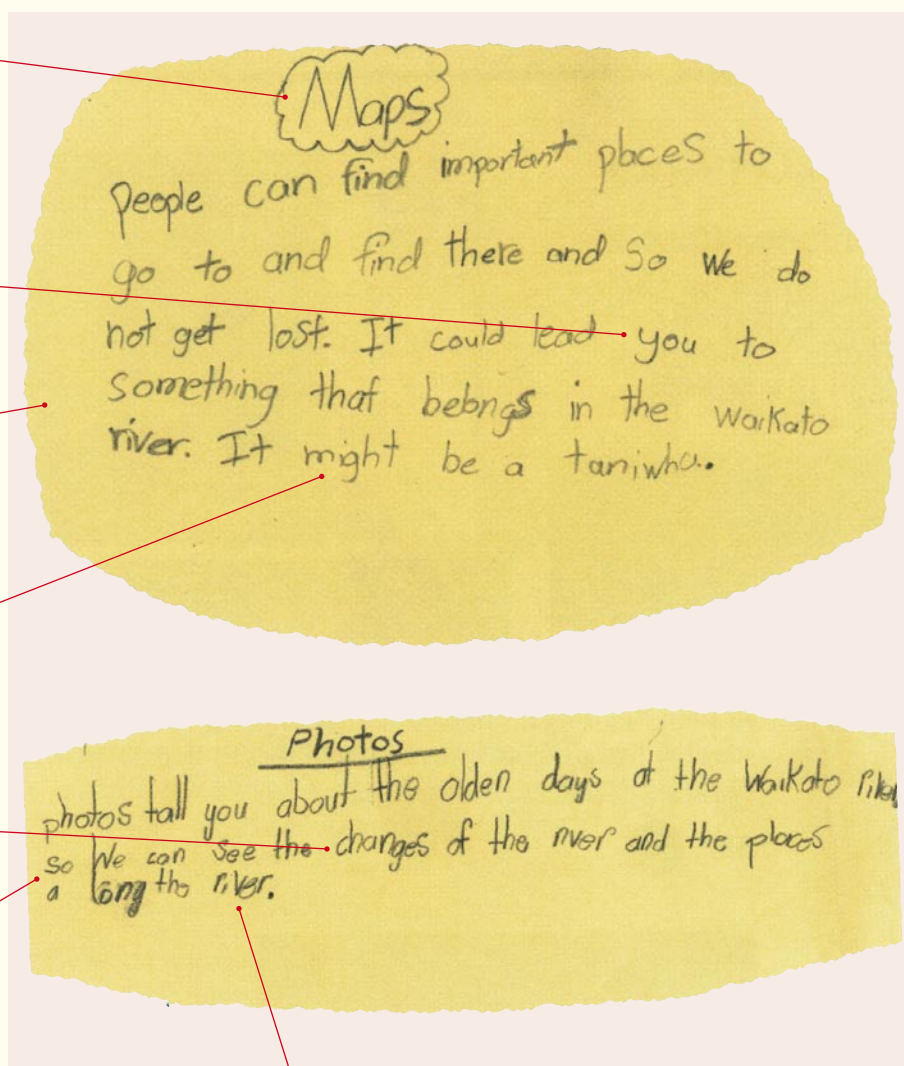 Maps
People can find important places to
go to and find there and so we do
not get lost. It could lead you to
something that belongs in the Waikato
river. It might be a taniwha.
Photos
photos tall you about the olden days at the Waikato river
so We can see the changes of the river and the places
a long the river.